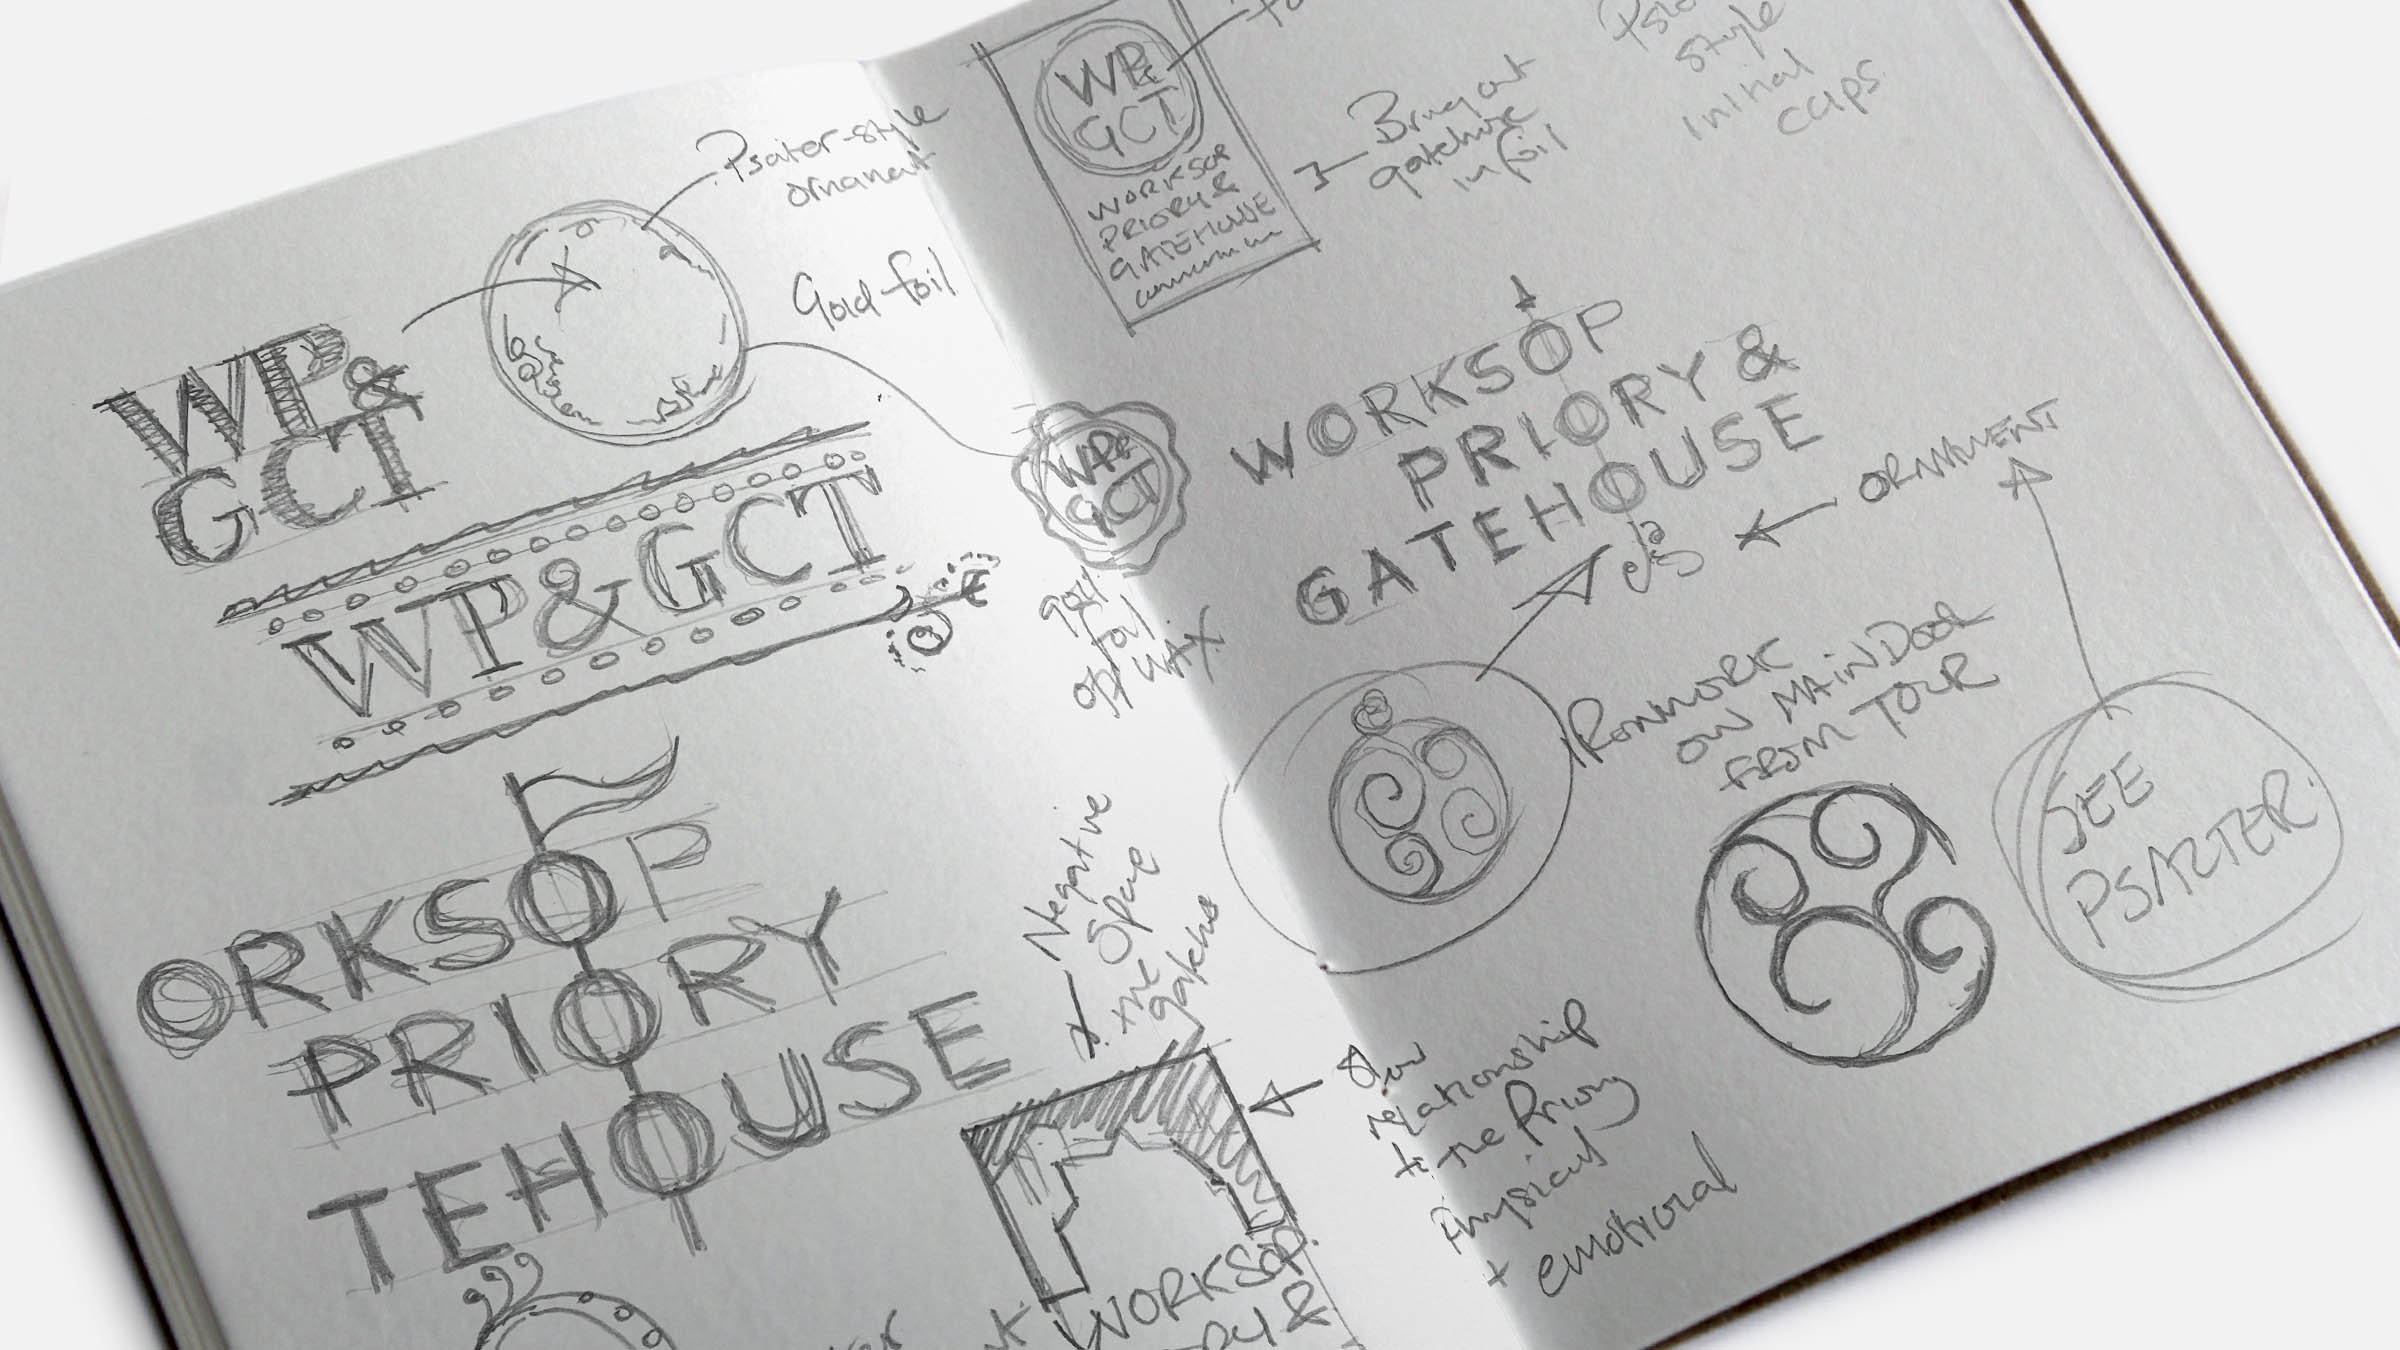 Psalter-style
ornament
Gold foil
WP&
GCT
WP&GCT
gold
foil
opp WAX
ORKSOP
PRIORY
TEHOUSE
Negative
Space
the
gatehouse
WORKSOP
&
WP&
GCT
WORKSOP
PRIORY &
GATEHOUSE
Bring out
gatehouse
in foil
style
initial
caps
WORKSOP
PRIORY &
GATEHOUSE
ORNAMENT
IRONWORK
ON MAIN DOOR
FROM TOUR
SEE
PSALTER
relationship
to the Priory
Physical
+ emotional
WP&
GCT